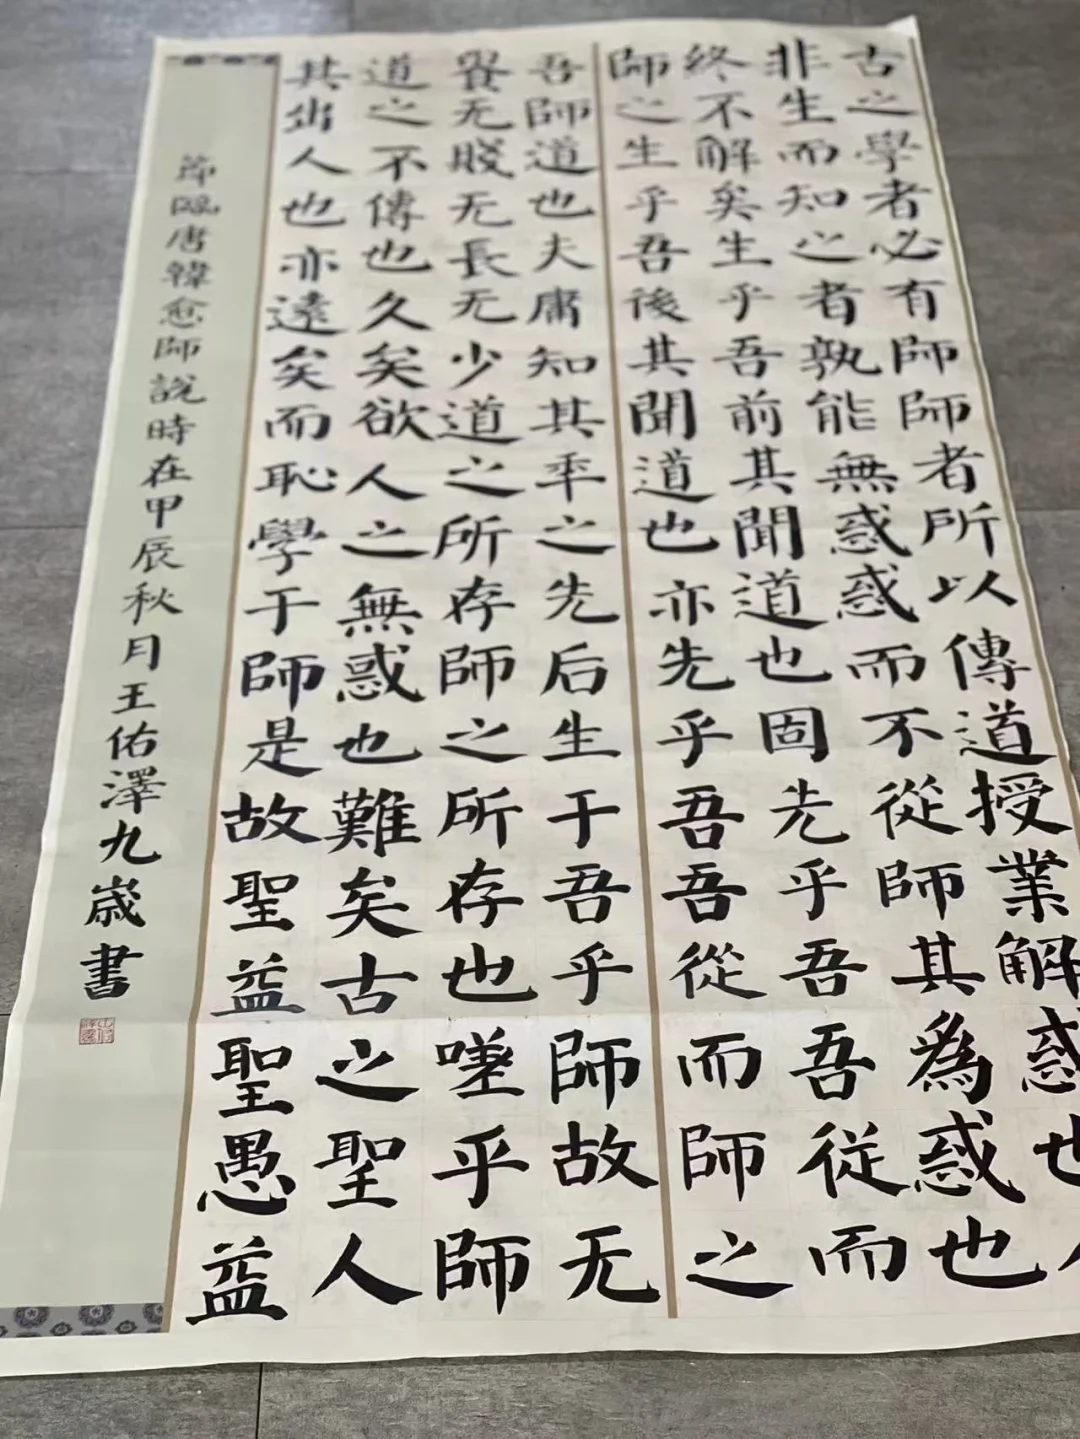 古之學者必有師師者所以傳道授業解惑也人
非生而知之者孰能無惑惑而不從師其為惑也
終不解矣生乎吾前其聞道也固先乎吾吾從而
師之生乎吾後其聞道也亦先乎吾吾從而師之
吾師道也夫庸知其年之先后生于吾乎師故无
貴无賤无長无少道之所存師之所存也嗟乎師
道之不傳也久矣欲人之無惑也難矣古之聖人
其出人也亦遠矣而恥學于師是故聖益聖愚益
節臨唐韓愈師說時在甲辰秋月王佑澤九歲書